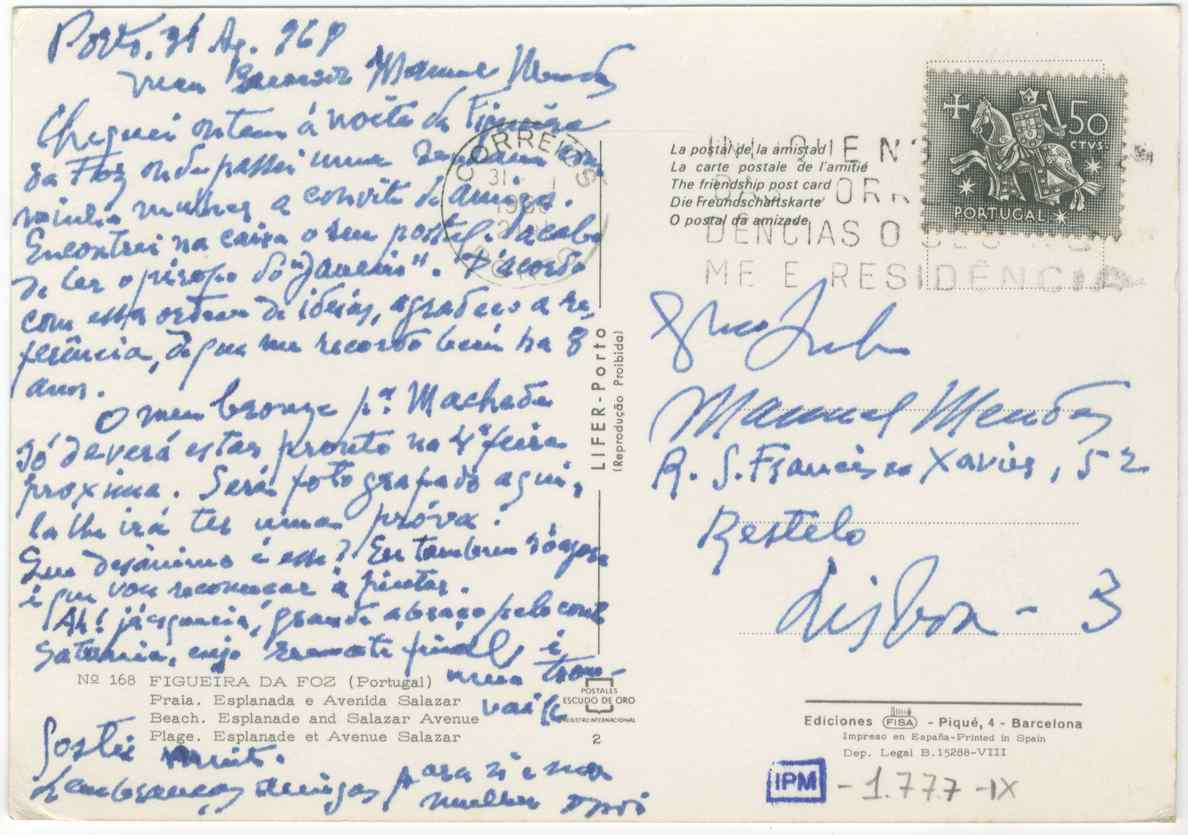 Porto, 31 Ag. 969
meu Manuel Mendes
Cheguei ontem à noite da Figueira
da Foz onde passei uma semana com
minha mulher a convite de amigos.
Encontrei na caixa o seu postal. Acabo
de ler o piropo do "Janeiro". D'acordo
com essa ordem de ideias, agradeço a re-
ferência, de que me recordo bem ha 8
anos.
O meu bronze pª Machado
Já deverá estar pronto na 4ª feira
proxima. Será fotografado aqui,
la lhe irá ter uma próva.
Que desanimo é esse? Eu tambem só agora
é que vou recomeçar a pintar.
Ah! já esquecia, grande abraço pelo conto
cujo final é
Nº 168 FIGUEIRA DA FOZ (Portugal)
Praia. Esplanada e Avenida Salazar
Beach. Esplanade and Salazar Avenue
Plage. Esplanade et Avenue Salazar
Gostei muito.
Lembranças amigas para si e sua
mulher
CORREIOS
31
LIFER-Porto
(Reprodução Proibida)
POSTALES
ESCUDO DE ORO
REGISTRO INTERNACIONAL
2
La postal de la amistad
La carte postale de l'amitié
The friendship post card
Die Freundschaftskarte
O postal da amizade
DÊNCIAS O
ME E RESIDÊNCIA
50
CTVS.
PORTUGAL
Manuel Mendes
R. S. Francisco Xavier, 52
Restelo
Lisboa - 3
Ediciones FISA - Piqué, 4 - Barcelona
Impreso en España-Printed in Spain
Dep. Legal B.15288-VIII
IPM - 1.777-IX